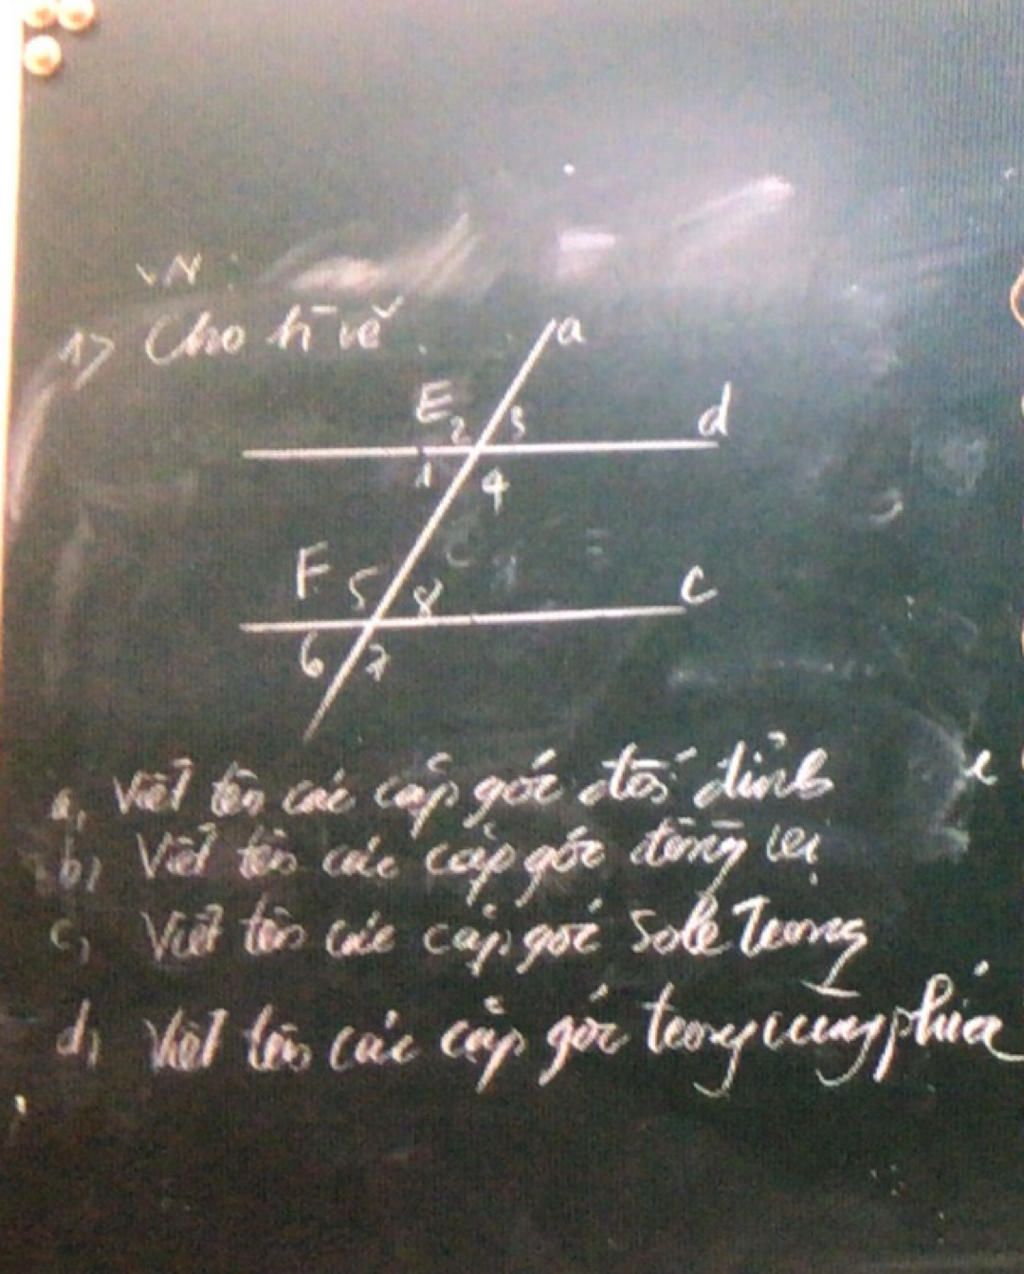 VN:
1> Cho h vẽ
a
E 2 3 d
1 4
F 5 8 c
6 7
a, Viết tên các cặp góc đối đỉnh
b, Viết tên các cặp góc đồng vị
c, Viết tên các cặp góc sole trong
d, Viết tên các cặp góc trong cùng phía